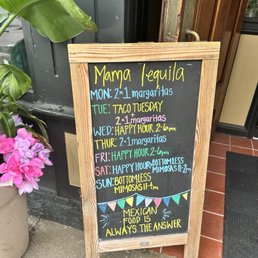 Mama Tequila
MON: 2x1 margaritas
TUE: TACO TUESDAY
2x1 margaritas
WED: HAPPY HOUR 2-6pm
THUR: 2x1 margaritas
FRI: HAPPY HOUR 2-6pm
SAT: HAPPY HOUR BOTTOMLESS
MIMOSAS
SUN: BOTTOMLESS
MIMOSAS 11-4pm
MEXICAN
FOOD IS
ALWAYS THE ANSWER